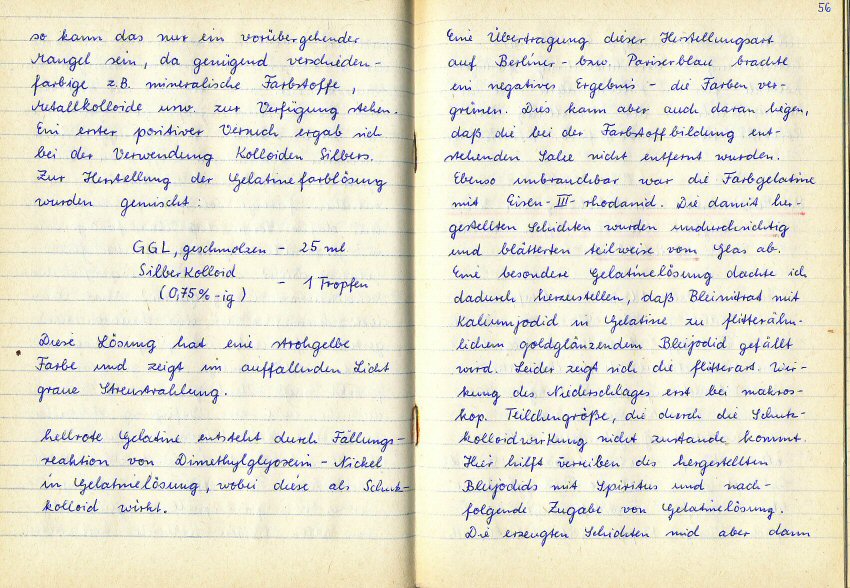 so kann das nur ein vorübergehender
Mangel sein, da genügend verschieden-
farbige z.B. mineralische Farbstoffe,
Metallkolloide usw. zur Verfügung stehen.
Ein erster positiver Versuch ergab sich
bei der Verwendung Kolloiden Silbers.
Zur Herstellung der Gelatinefarblösung
wurden gemischt:
GGL, geschmolzen - 25 ml
SilberKolloid
- 1 Tropfen
(0,75%-ig)
Diese Lösung hat eine strohgelbe
Farbe und zeigt im auffallenden Licht
graue Streustrahlung.
hellrote Gelatine entsteht durch Fällungs-
reaktion von Dimethylglyoxim-Nickel
in Gelatinelösung, wobei diese als Schutz-
kolloid wirkt.
56
Eine Übertragung dieser Herstellungsart
auf Berliner- bzw. Pariserblau brachte
ein negatives Ergebnis - die Farben ver-
grünen. Dies kann aber auch daran liegen,
daß die bei der Farbstoffbildung ent-
stehenden Salze nicht entfernt wurden.
Ebenso unbrauchbar war die Farbgelatine
mit Eisen-III-rhodanid. Die damit her-
gestellten Schichten wurden undurchsichtig
und blätterten teilweise vom Glas ab.
Eine besondere Gelatinelösung dachte ich
dadurch herzustellen, daß Bleinitrat mit
Kaliumjodid in Gelatine zu flitterähn-
lichem goldglänzendem Bleijodid gefällt
wird. Leider zeigt sich die flitterart. Wir-
kung des Niederschlages erst bei makros-
kop. Teilchengröße, die durch die Schutz-
kolloidwirkung nicht zustande kommt.
Hier hilft verreiben des hergestellten
Bleijodids mit Spiritus und nach-
folgende Zugabe von Gelatinelösung.
Die erzeugten Schichten sind aber dann